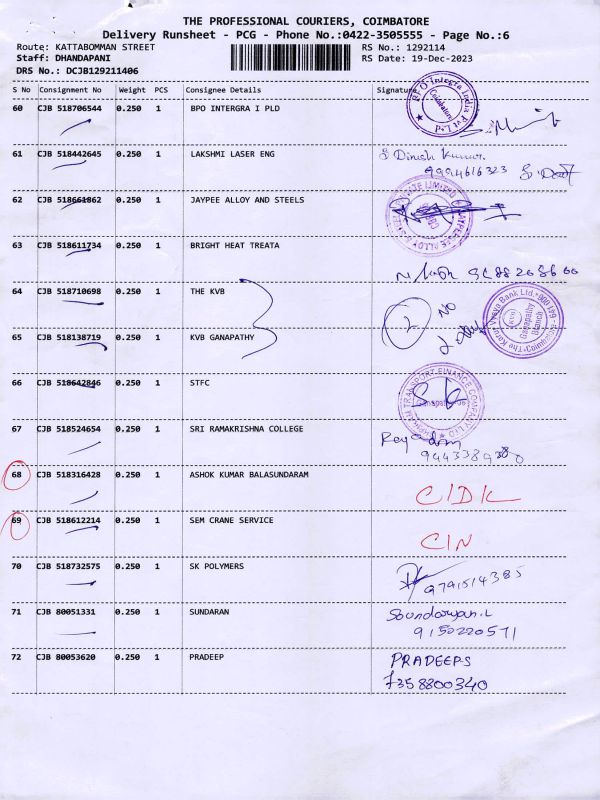 THE PROFESSIONAL COURIERS, COIMBATORE
Delivery Runsheet - PCG - Phone No.:0422-3505555 - Page No.:6
Route: KATTABOMMAN STREET RS No.: 1292114
Staff: DHANDAPANI RS Date: 19-Dec-2023
DRS No.: DCJB129211406
S No Consignment No Weight PCS Consignee Details Signature
60 CJB 518706544 0.250 1 BPO INTERGRA I PLD
61 CJB 518442645 0.250 1 LAKSHMI LASER ENG S Dinesh Kumar.
9994616323
62 CJB 518661862 0.250 1 JAYPEE ALLOY AND STEELS
63 CJB 518611734 0.250 1 BRIGHT HEAT TREATA
64 CJB 518710698 0.250 1 THE KVB 2 NO
65 CJB 518138719 0.250 1 KVB GANAPATHY
The Karur Vysya Bank Ltd.
Ganapathy
Branch
66 CJB 518642846 0.250 1 STFC
67 CJB 518524654 0.250 1 SRI RAMAKRISHNA COLLEGE
68 CJB 518316428 0.250 1 ASHOK KUMAR BALASUNDARAM C/DK
69 CJB 518612214 0.250 1 SEM CRANE SERVICE C/N
70 CJB 518732575 0.250 1 SK POLYMERS 9791514385
71 CJB 80051331 0.250 1 SUNDARAN
9150220571
72 CJB 80053620 0.250 1 PRADEEP PRADEEP.S
7358800340